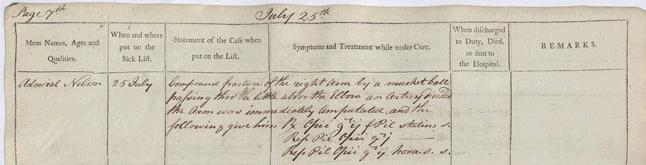 Page 7th
July 25th
Mens Names, Ages and Qualities.
When and where put on the Sick List.
Statement of the Case when put on the List.
Symptoms and Treatment while under Cure.
When discharged to Duty, Died, or sent to the Hospital.
REMARKS.
Admiral Nelson 25 July Compound fracture of the right Arm by a musket ball
passing thro' a little above the Elbow an Artery divided
the Arm was immediately amputated and the
following give him Rx Opii gr ij f Pil statim s.
Rep Pil Opii gr ij
Rep Pil Opii gr ij hora s. s.